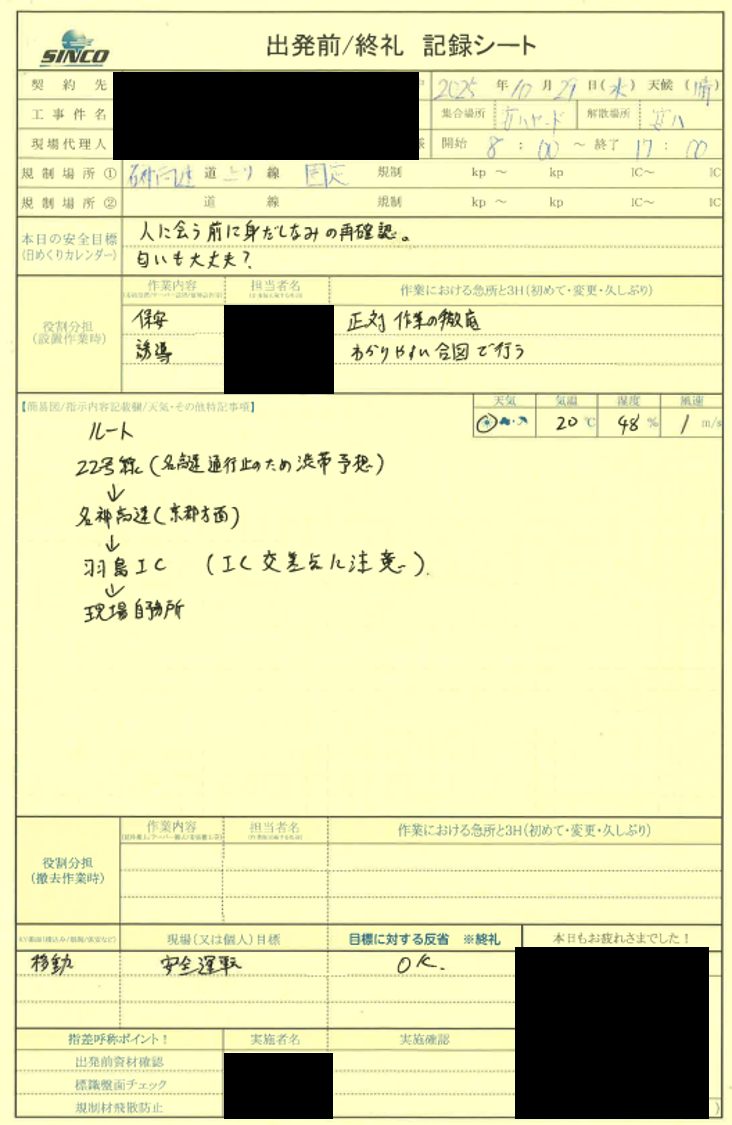 SINCO
出発前/終礼 記録シート
契約先
2025 年 10 月 29 日(水) 天候 (晴)
工事件名
集合場所 解散場所
現場代理人
開始 8 : 00 ～ 終了 17 : 00
規制場所① 名神高速 道 上り 線 固定 規制 kp ～ kp IC～ IC
規制場所② 道 線 規制 kp ～ kp IC～ IC
本日の安全目標
(日めくりカレンダー)
人に会う前に身だしなみの再確認。
匂いも大丈夫?
役割分担
(設置作業時)
作業内容 担当者名 作業における急所と3H(初めて・変更・久しぶり)
保安 正対作業の徹底
誘導 わかりやすい合図で行う
【簡易図/指示内容記載欄/天気・その他特記事項】
天気 気温 湿度 風速
20 ℃ 48 % 1 m/s
ルート
22号線(名高速通行止のため渋帯予想)
↓
名神高速(京都方面)
↓
羽島IC (IC交差点に注意)
↓
現場自務所
役割分担
(撤去作業時)
作業内容 担当者名 作業における急所と3H(初めて・変更・久しぶり)
現場(又は個人)目標 目標に対する反省 ※終礼 本日もお疲れさまでした!
移動 安全運転 OK.
指差呼称ポイント! 実施者名 実施確認
出発前資材確認
標識盤面チェック
規制材飛散防止